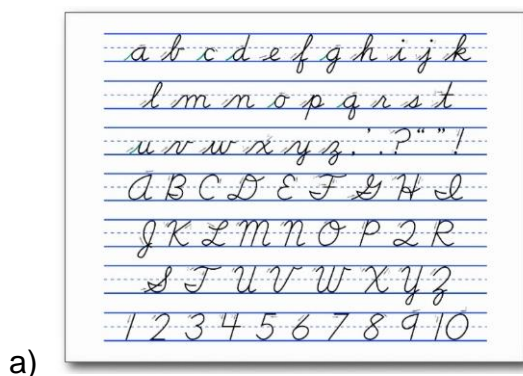 a b c d e f g h i j k
l m n o p q r s t
u v w x y z . ' . ? “ ” !
A B C D E F G H I
J K L M N O P Q R
S T U V W X Y Z
1 2 3 4 5 6 7 8 9 10
a)